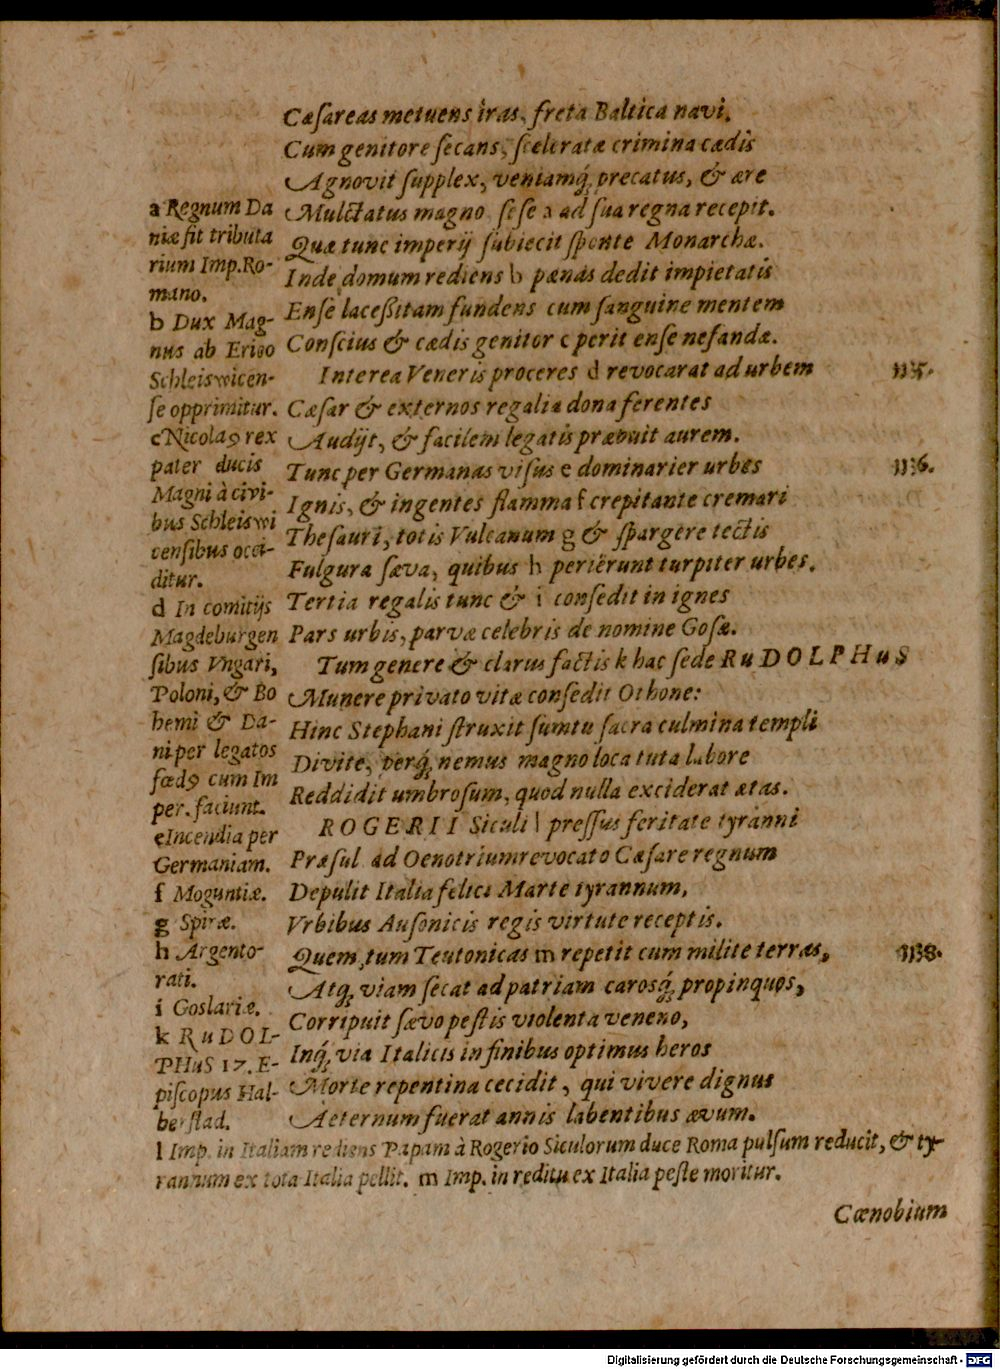 Cæſareas metuens iras, freta Baltica navi.
Cum genitore ſecans, ſceleratæ crimina cædis
Agnovit ſupplex, veniamq́; precatus, & ære
Mulctatus magno ſeſe a ad ſua regna recepit.
Quæ tunc imperij ſubiecit ſponte Monarchæ.
Inde domum rediens b pœnas dedit impietatis
Enſe laceßitam fundens cum ſanguine mentem
Conſcius & cædis genitor c perit enſe nefandæ.
Interea Veneris proceres d revocarat ad urbem
1135.
Cæſar & externos regalia dona ferentes
Audijt, & facilem legatis præbuit aurem.
Tunc per Germanas viſus e dominarier urbes
1136.
Ignis, & ingentes flamma f crepitante cremari
Theſauri, totis Vulcanum g & ſpargere tectis
Fulgura ſæva, quibus h periêrunt turpiter urbes.
Tertia regalis tunc & i conſedit in ignes
Pars urbis, parvæ celebris de nomine Goſæ.
Tum genere & clarus factis k hac ſede RuDOLPHuS
Munere privato vitæ conſedit Othone:
Hinc Stephani ſtruxit ſumtu ſacra culmina templi
Divite, perq́; nemus magno loca tuta labore
Reddidit umbroſum, quod nulla exciderat ætas.
ROGERII Siculi l preſſus feritate tyranni
Præſul ad Oenotrium revocato Cæſare regnum
Depulit Italia felici Marte tyrannum,
Vrbibus Auſonicis regis virtute receptis.
Quem tum Teutonicas m repetit cum milite terras,
1138.
Atq́; viam ſecat ad patriam carosq́; propinquos,
Corripuit ſævo peſtis violenta veneno,
Inq́; via Italicis in finibus optimus heros
Morte repentina cecidit, qui vivere dignus
Aeternum fuerat annis labentibus ævum.
a Regnum Da
niæ fit tributa
rium Imp. Ro-
mano.
b Dux Mag-
nus ab Erico
Schleiswicen-
ſe opprimitur.
c Nicolaꝰ rex
pater ducis
Magni à civi-
bus Schleiswi
cenſibus occi-
ditur.
d In comitijs
Magdeburgen
ſibus Vngari,
Poloni, & Bo
hemi & Da-
ni per legatos
fœdꝰ cum Im
per. faciunt.
e Incendia per
Germaniam.
f Moguntiæ.
g Spiræ.
h Argento-
rati.
i Goslariæ.
k RuDOL-
PHuS 17. E-
piſcopus Hal-
berſtad.
l Imp. in Italiam rediens Papam à Rogerio Siculorum duce Roma pulſum reducit, & ty-
rannum ex tota Italia pellit. m Imp. in reditu ex Italia peſte moritur.
Cœnobium
Digitalisierung gefördert durch die Deutsche Forschungsgemeinschaft - DFG